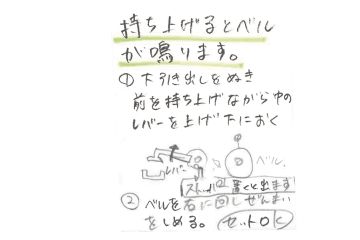 持ち上げるとベル
が鳴ります。
① 下引き出しをぬき
前を持ち上げながら中の
レバーを上げ下におく
レバー
ベル.
ストッパ
置くと出ます
② ベルを右に回しぜんまい
をしめる。セットOK